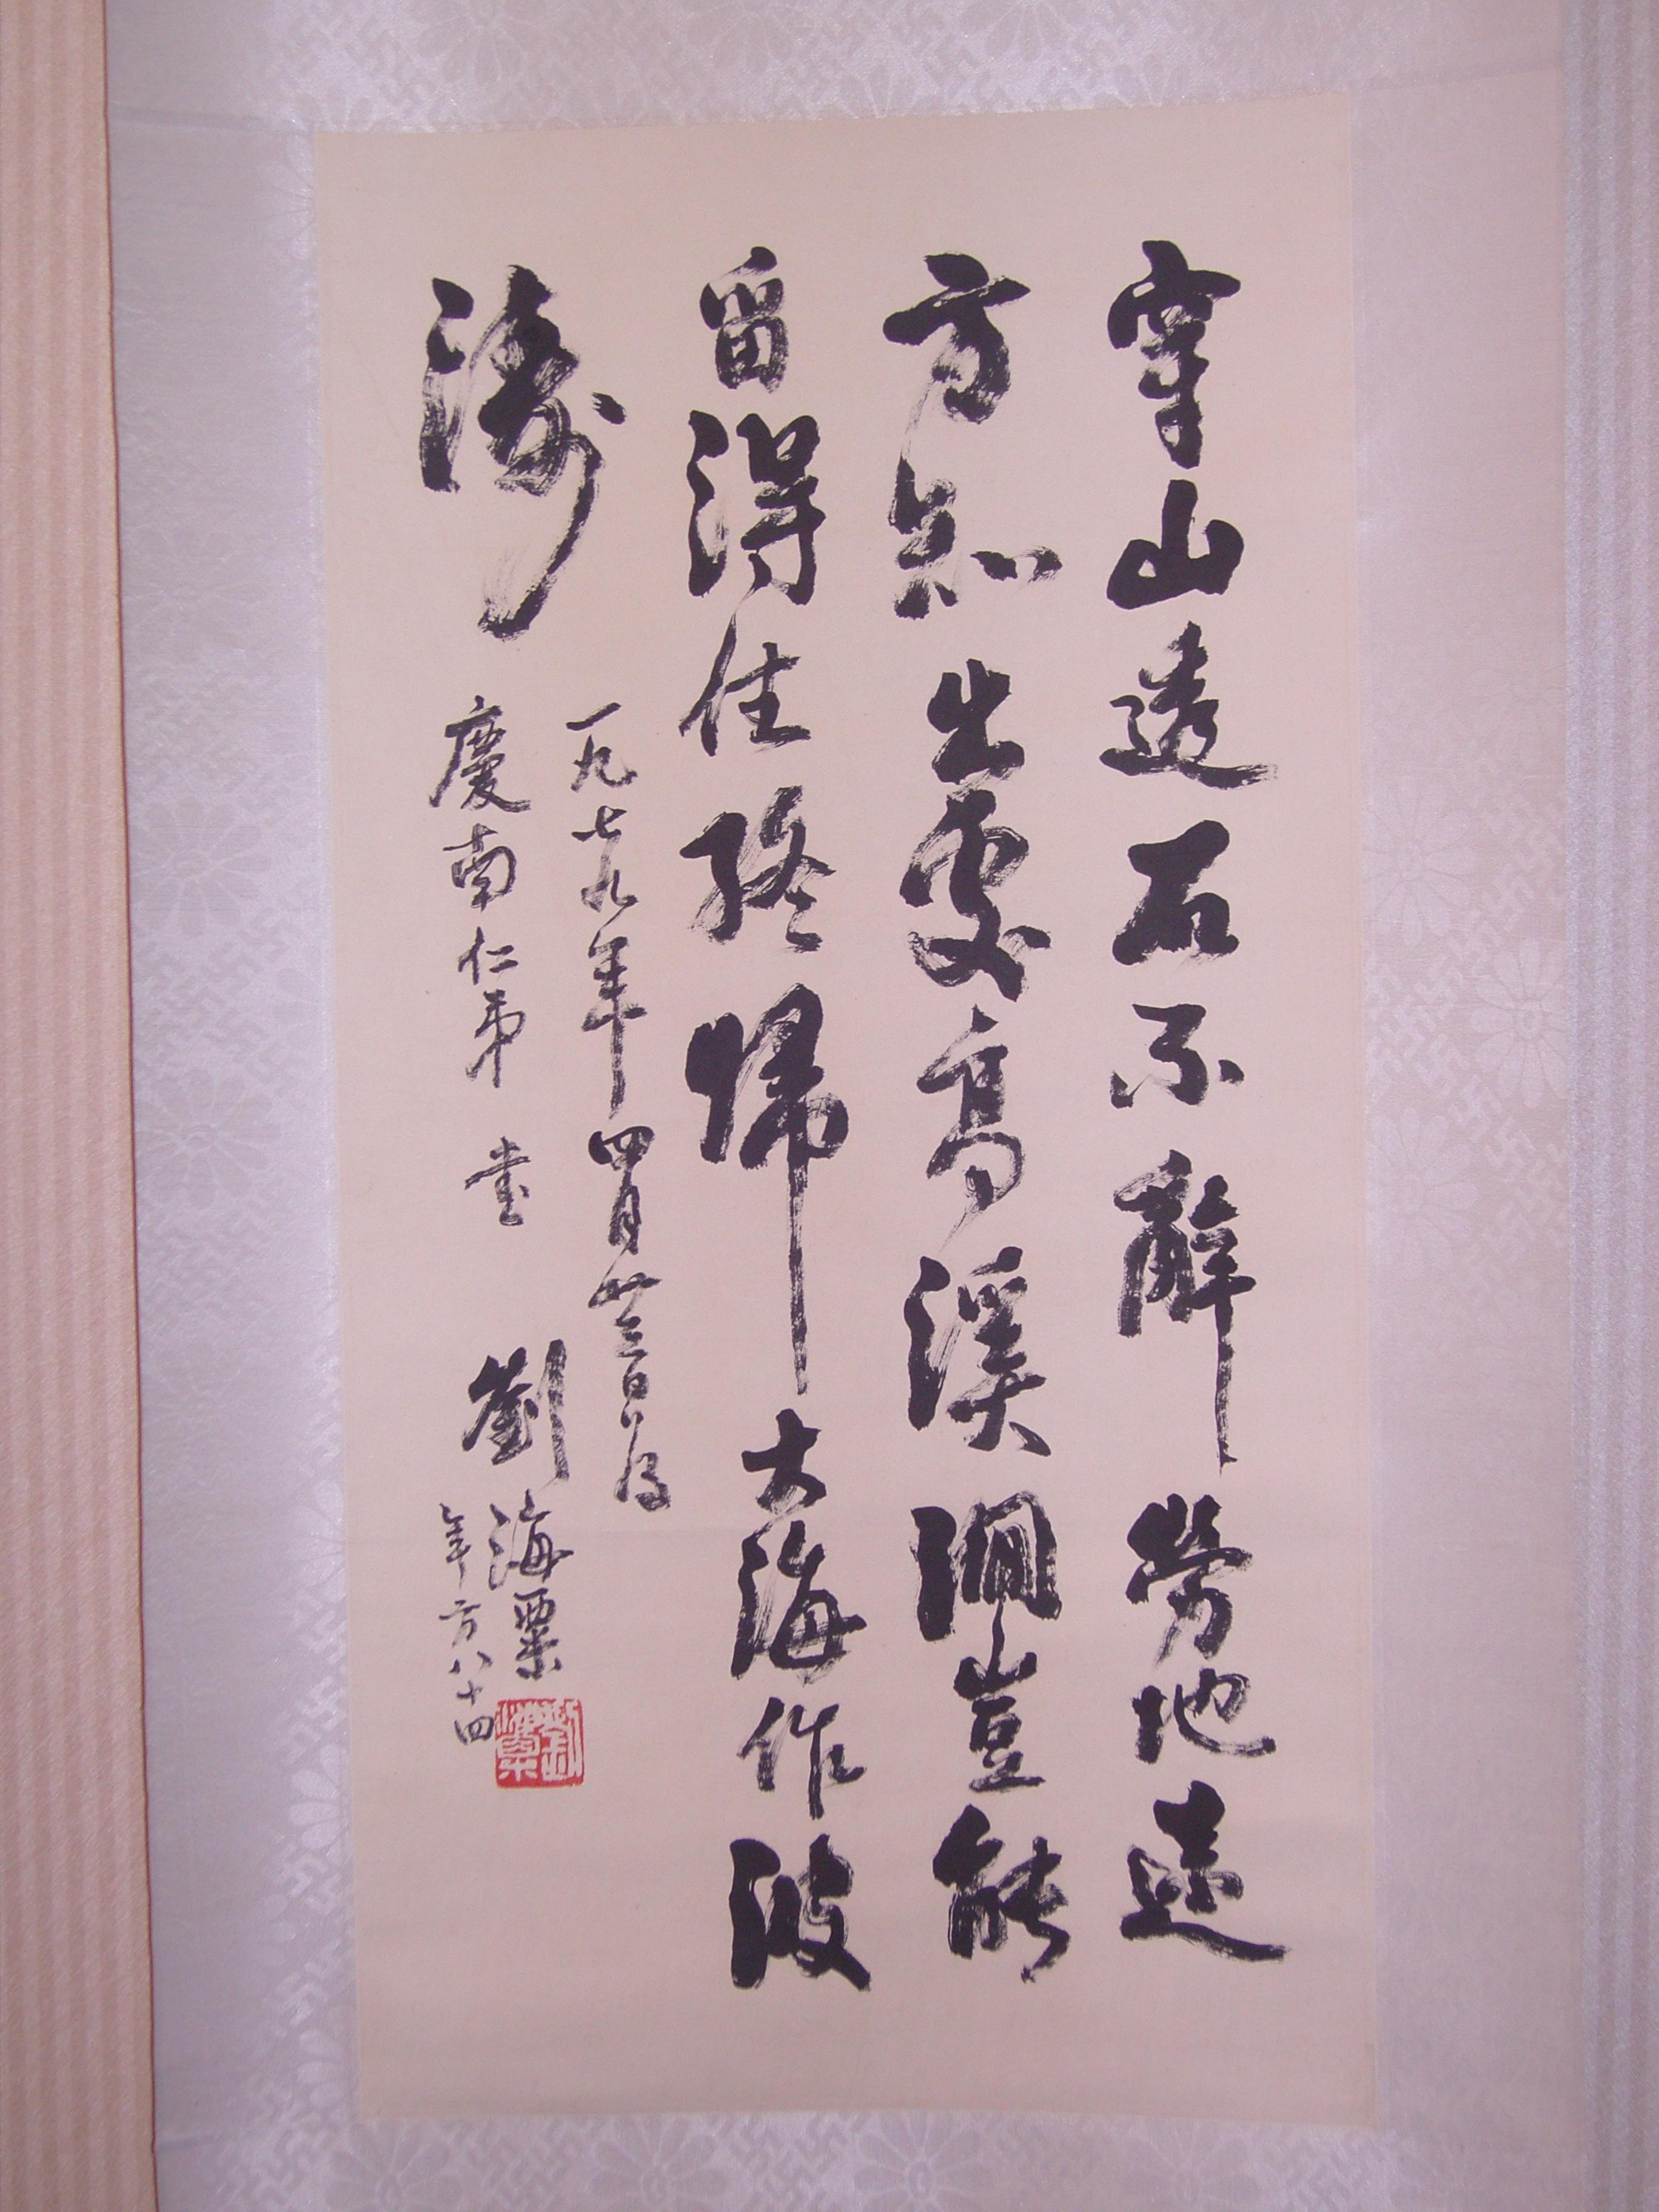 穿山透石不辭勞地遠
方知出處高溪澗豈能
留得住終歸大海作波
濤
一九七九年四月廿三日為
慶南仁弟 書
劉海粟
年方八十四
劉海粟